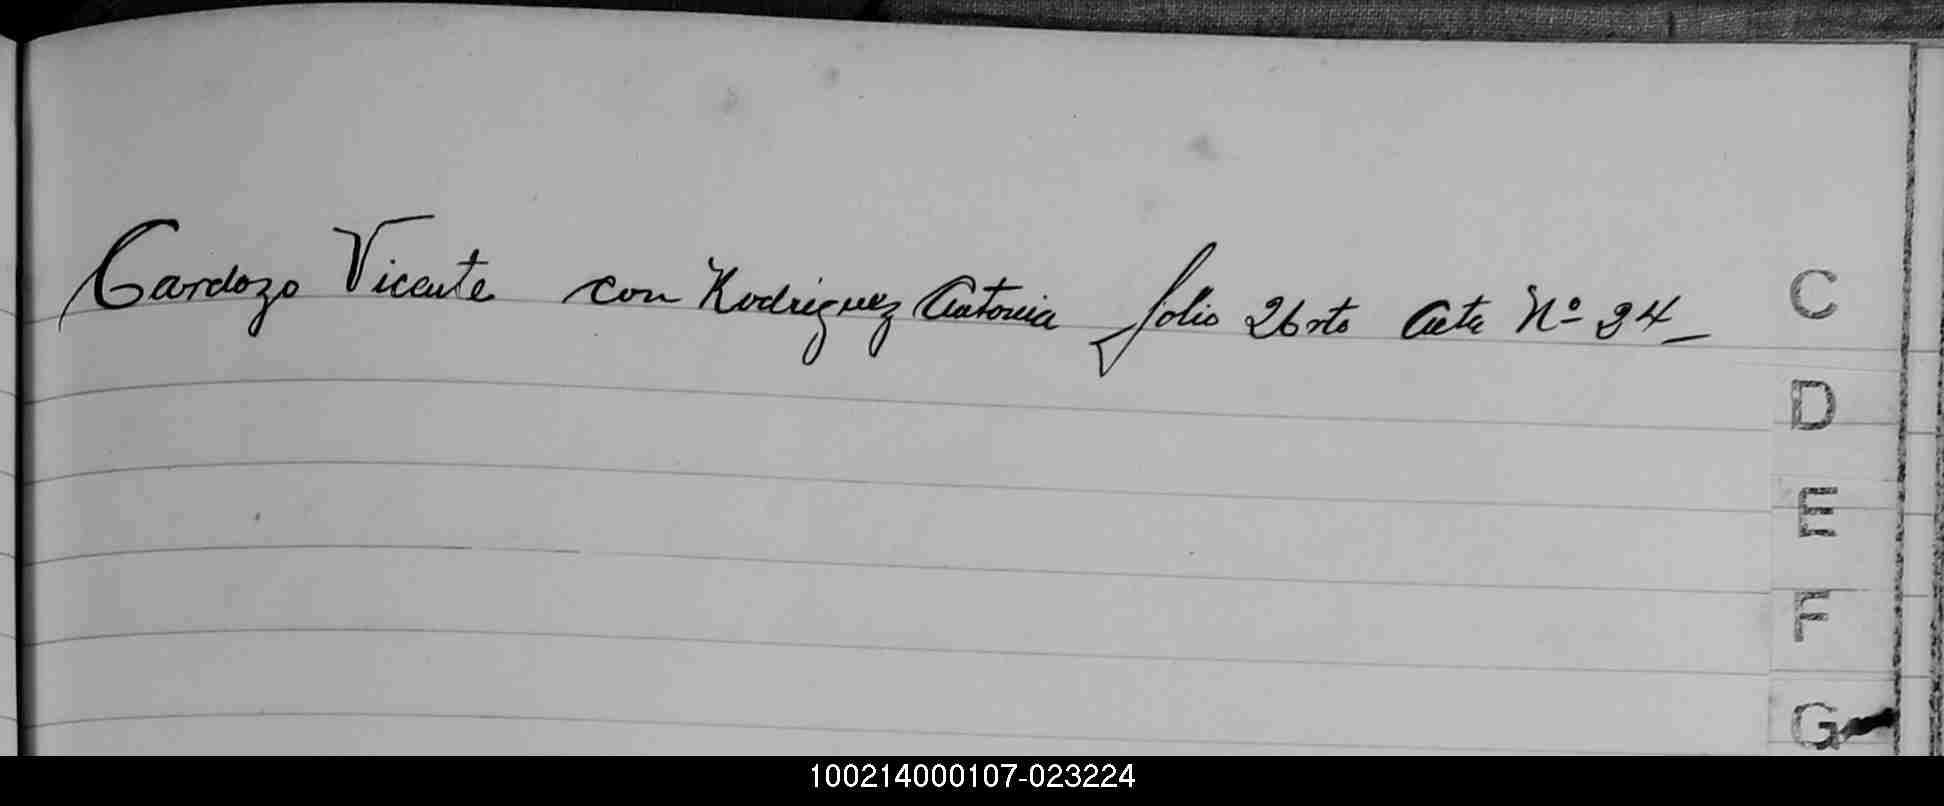 Cardozo Vicente con Rodriguez Antonia folio 26 vto Acta Nº 24
C
D
E
F
G
100214000107-023224